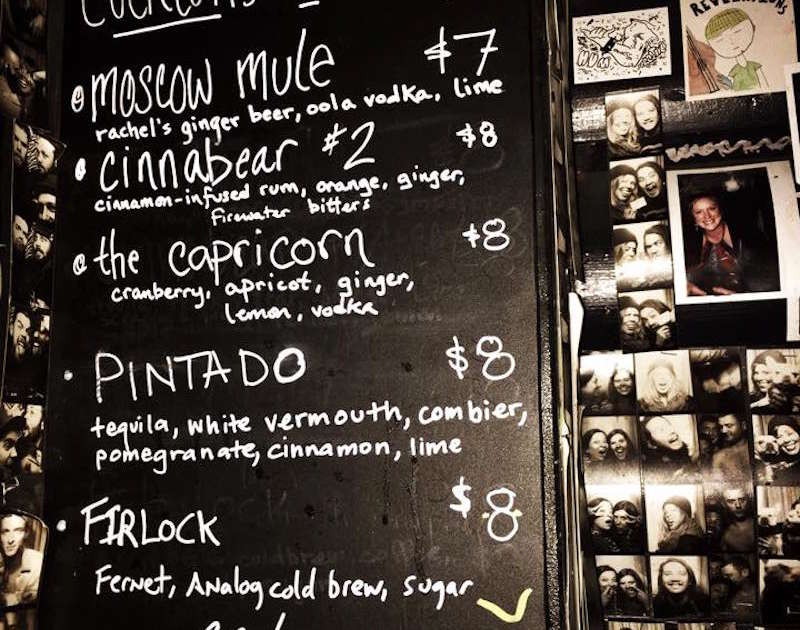 COCKTAILS
moscow mule $7
rachel's ginger beer, oola vodka, lime
cinnabear #2 $8
cinnamon-infused rum, orange, ginger,
firewater bitters
the capricorn $8
cranberry, apricot, ginger,
lemon, vodka
PINTADO $8
tequila, white vermouth, combier,
pomegranate, cinnamon, lime
FIRLOCK $8
Fernet, Analog cold brew, sugar
REVELATIONS